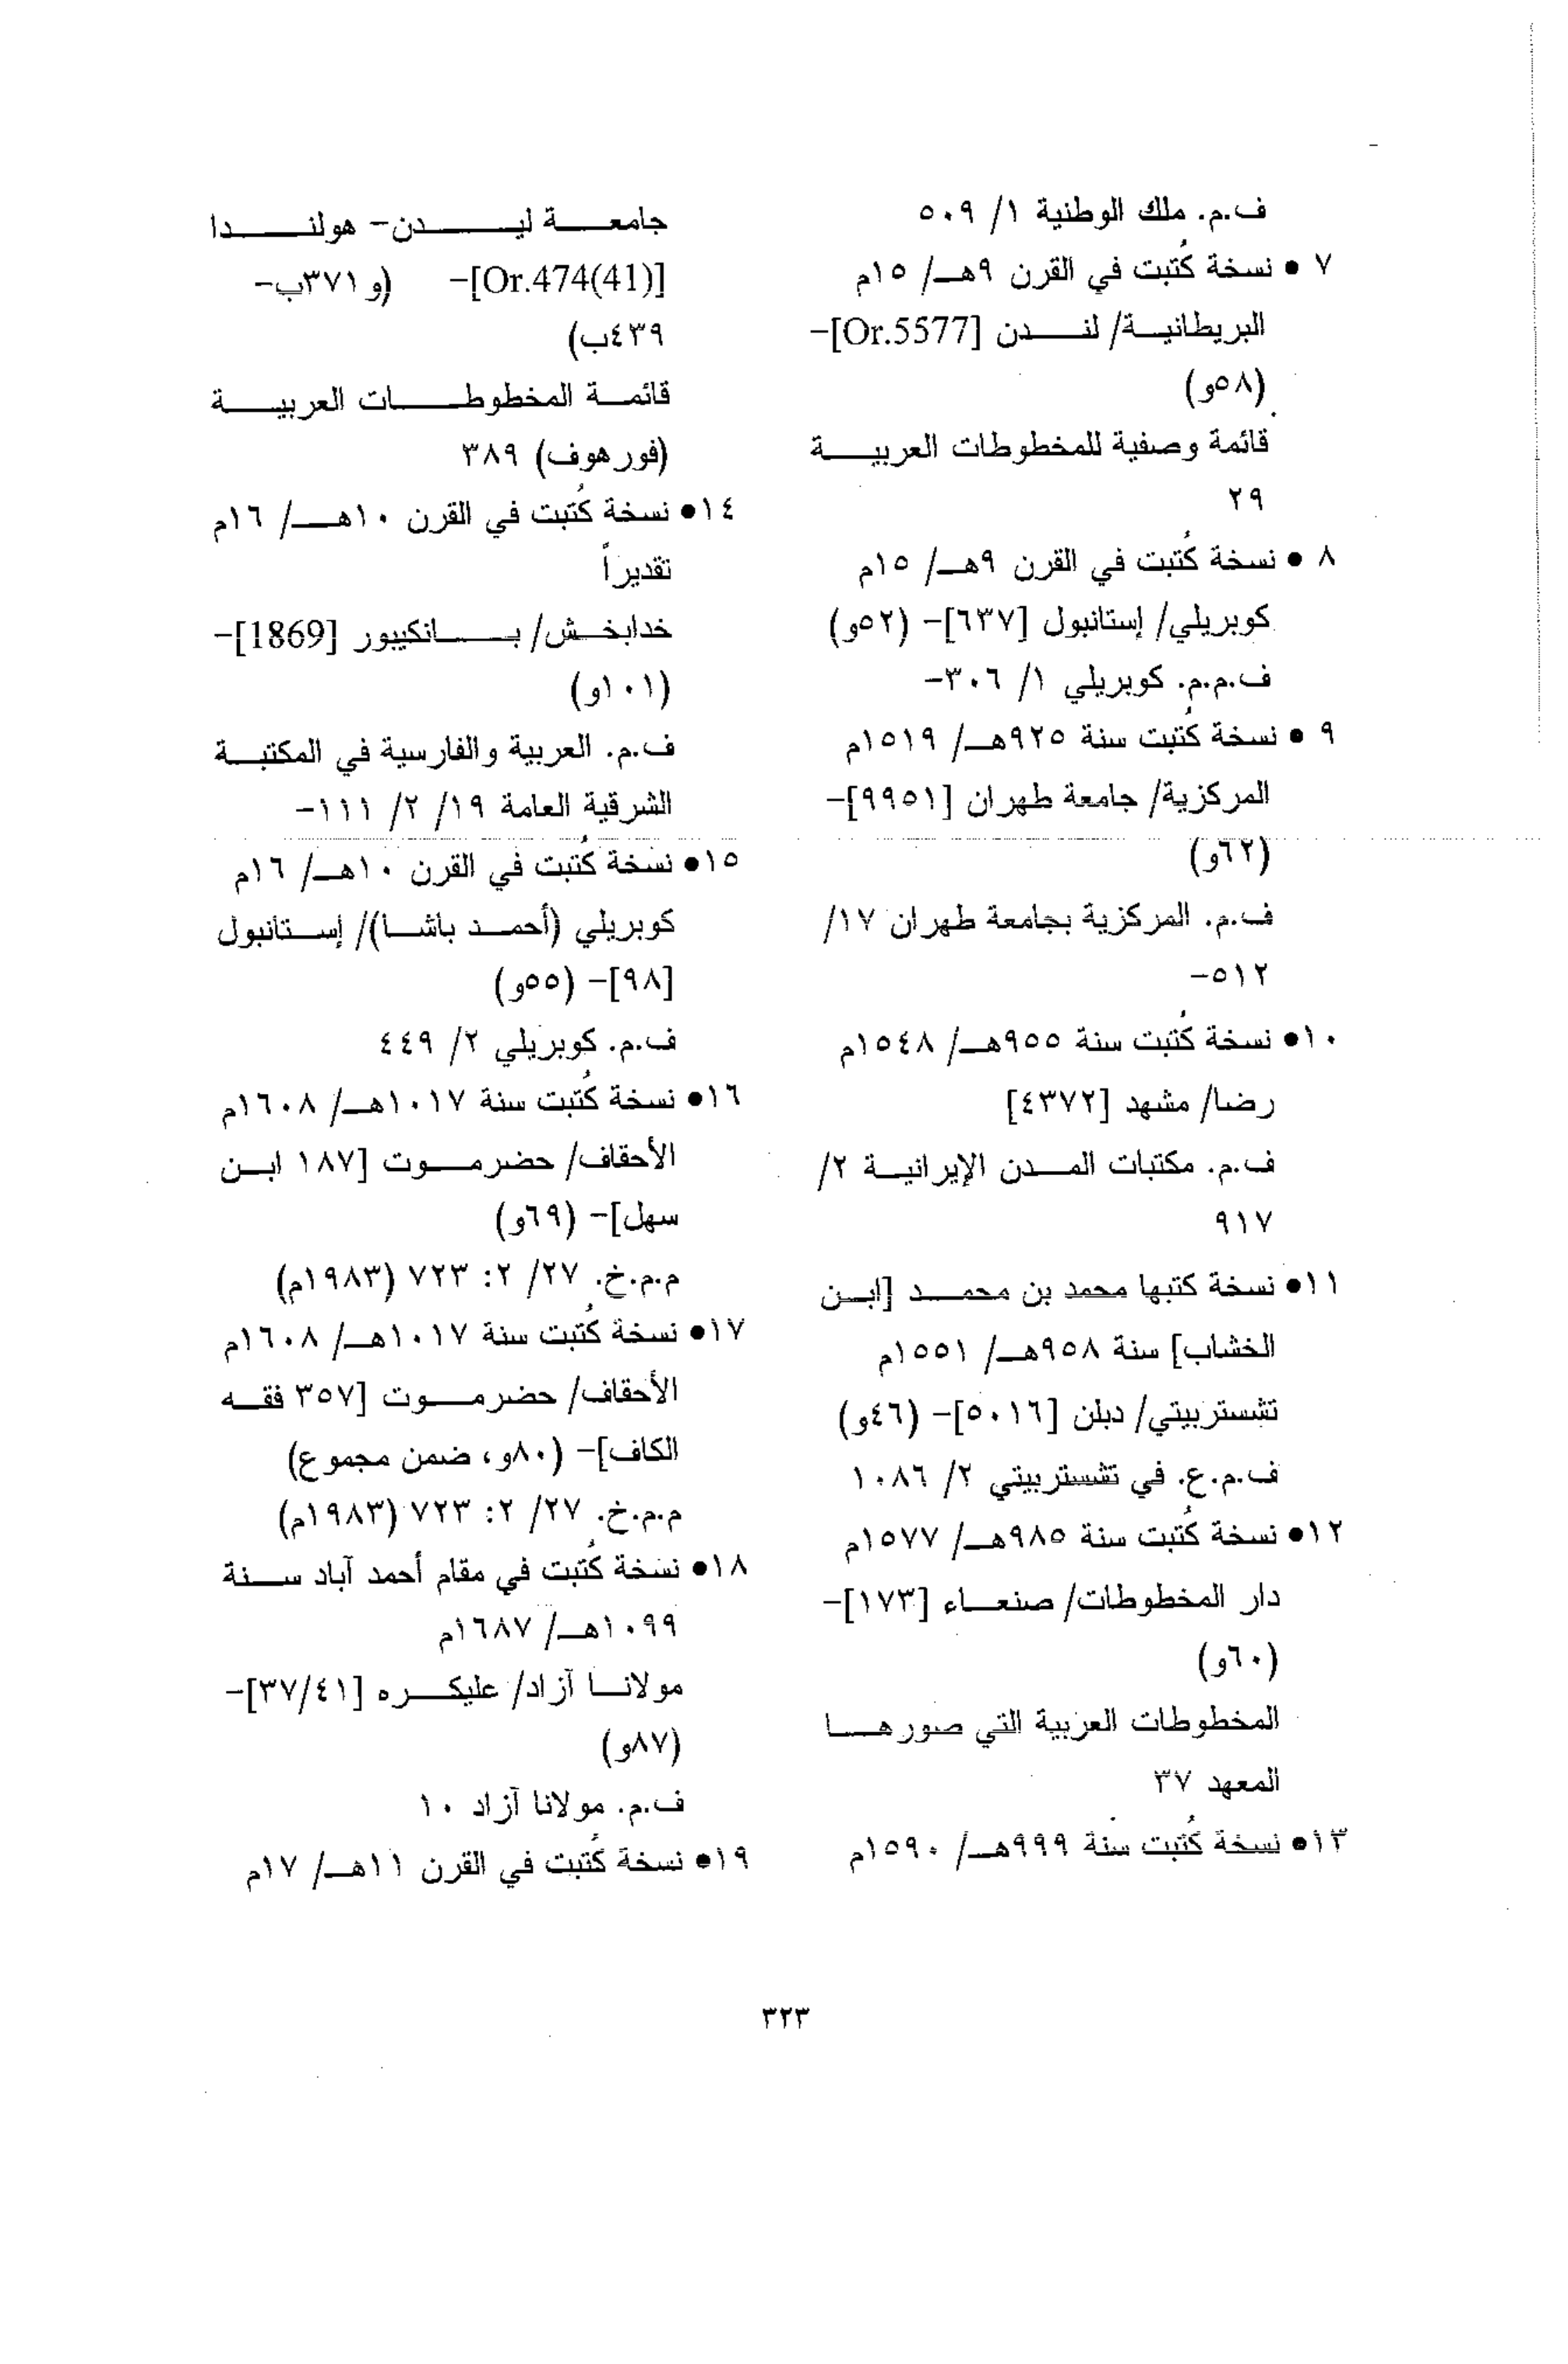 ف.م. ملك الوطنية ١/ ٥٠٩
٧ • نسخة كُتبت في القرن ٩هـ/ ١٥م
البريطانية/ لندن [Or.5577]-
(٥٨و)
قائمة وصفية للمخطوطات العربية
٢٩
٨ • نسخة كُتبت في القرن ٩هـ/ ١٥م
كوبريلي/ إستانبول [٦٣٧]- (٥٢و)
ف.م.م. كوبريلي ١/ ٣٠٦-
٩ • نسخة كُتبت سنة ٩٢٥هـ/ ١٥١٩م
المركزية/ جامعة طهران [٩٩٥١]-
(٦٢و)
ف.م. المركزية بجامعة طهران ١٧/
٥١٢-
١٠• نسخة كُتبت سنة ٩٥٥هـ/ ١٥٤٨م
رضا/ مشهد [٤٣٧٢]
ف.م. مكتبات المدن الإيرانية ٢/
٩١٧
١١• نسخة كتبها محمد بن محمد [ابن
الخشاب] سنة ٩٥٨هـ/ ١٥٥١م
تشستربيتي/ دبلن [٥٠١٦]- (٤٦و)
ف.م.ع. في تشستربيتي ٢/ ١٠٨٦
١٢• نسخة كُتبت سنة ٩٨٥هـ/ ١٥٧٧م
دار المخطوطات/ صنعاء [١٧٣]-
(٦٠و)
المخطوطات العربية التي صورها
المعهد ٣٧
١٣• نسخة كُتبت سنة ٩٩٩هـ/ ١٥٩٠م
جامعة ليدن- هولندا
[Or.474(41)]- (و ٣٧١ب-
٤٣٩ب)
قائمة المخطوطات العربية
(فورهوف) ٣٨٩
١٤• نسخة كُتبت في القرن ١٠هـ/ ١٦م
تقديراً
خدابخش/ بانكيبور [1869]-
(١٠١و)
ف.م. العربية والفارسية في المكتبة
الشرقية العامة ١٩/ ٢/ ١١١-
١٥• نسخة كُتبت في القرن ١٠هـ/ ١٦م
كوبريلي (أحمد باشا)/ إستانبول
[٩٨]- (٥٥و)
ف.م. كوبريلي ٢/ ٤٤٩
١٦• نسخة كُتبت سنة ١٠١٧هـ/ ١٦٠٨م
الأحقاف/ حضرموت [١٨٧ ابن
سهل]- (٦٩و)
م.م.خ. ٢٧/ ٢: ٧٢٣ (١٩٨٣م)
١٧• نسخة كُتبت سنة ١٠١٧هـ/ ١٦٠٨م
الأحقاف/ حضرموت [٣٥٧ فقه
الكاف]- (٨٠و، ضمن مجموع)
م.م.خ. ٢٧/ ٢: ٧٢٣ (١٩٨٣م)
١٨• نسخة كُتبت في مقام أحمد آباد سنة
١٠٩٩هـ/ ١٦٨٧م
مولانا آزاد/ عليكره [٣٧/٤١]-
(٨٧و)
ف.م. مولانا آزاد ١٠
١٩• نسخة كُتبت في القرن ١١هـ/ ١٧م
٣٢٣